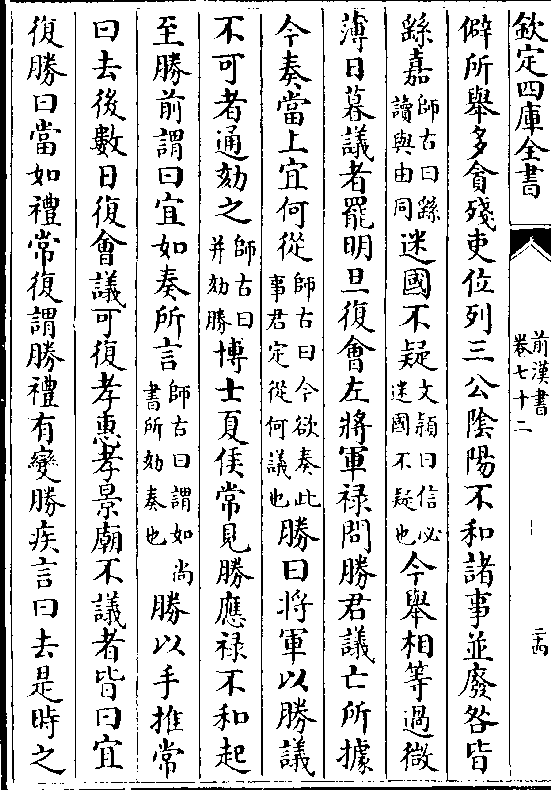 欽定四庫全書
前漢書
卷七十二
二十四
僻所舉多貪殘吏位列三公陰陽不和諸事並廢咎皆
繇嘉師古曰繇讀與由同迷國不疑文穎曰信必迷國不疑也今舉相等過微
薄日暮議者罷明旦復會左將軍祿問勝君議亡所據
今奏當上宜何從師古曰今欲奏此事君定從何議也勝曰將軍以勝議
不可者通劾之師古曰并劾勝博士夏侯常見勝應祿不和起
至勝前謂曰宜如奏所言師古曰謂如尚書所劾奏也勝以手推常
曰去後數日復會議可復孝惠孝景廟不議者皆曰宜
復勝曰當如禮常復謂勝禮有變勝疾言曰去是時之